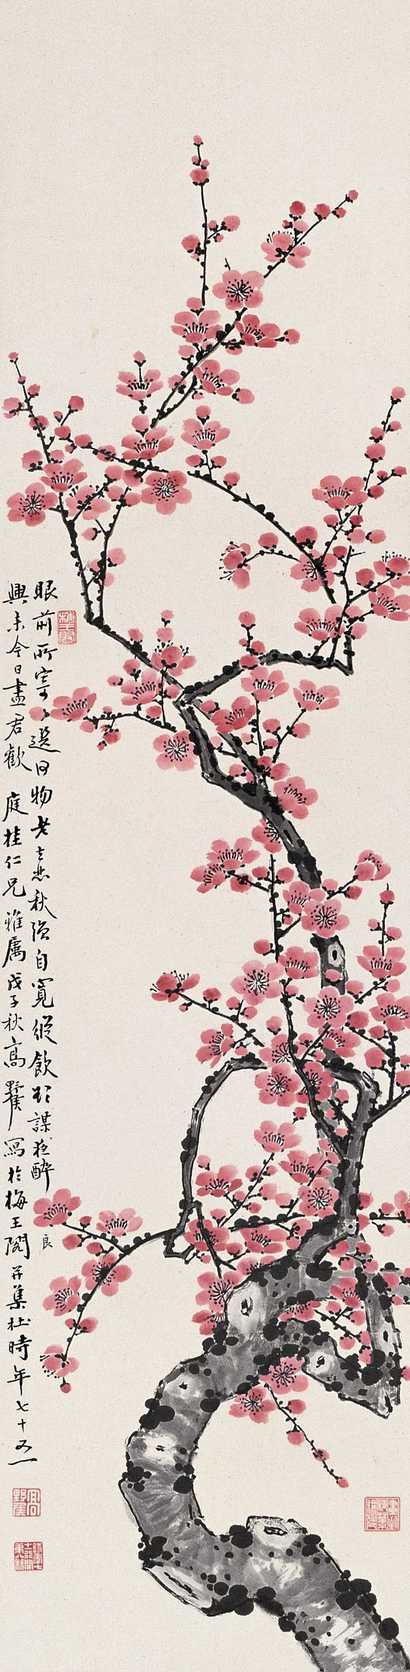 眼前所寄選何物老去悲秋强自寬縱飲欲謀夜醉
良
興来今日盡君歡 庭桂仁兄雅屬戊子秋高野侯寫於梅王閣并集杜時年七十又一